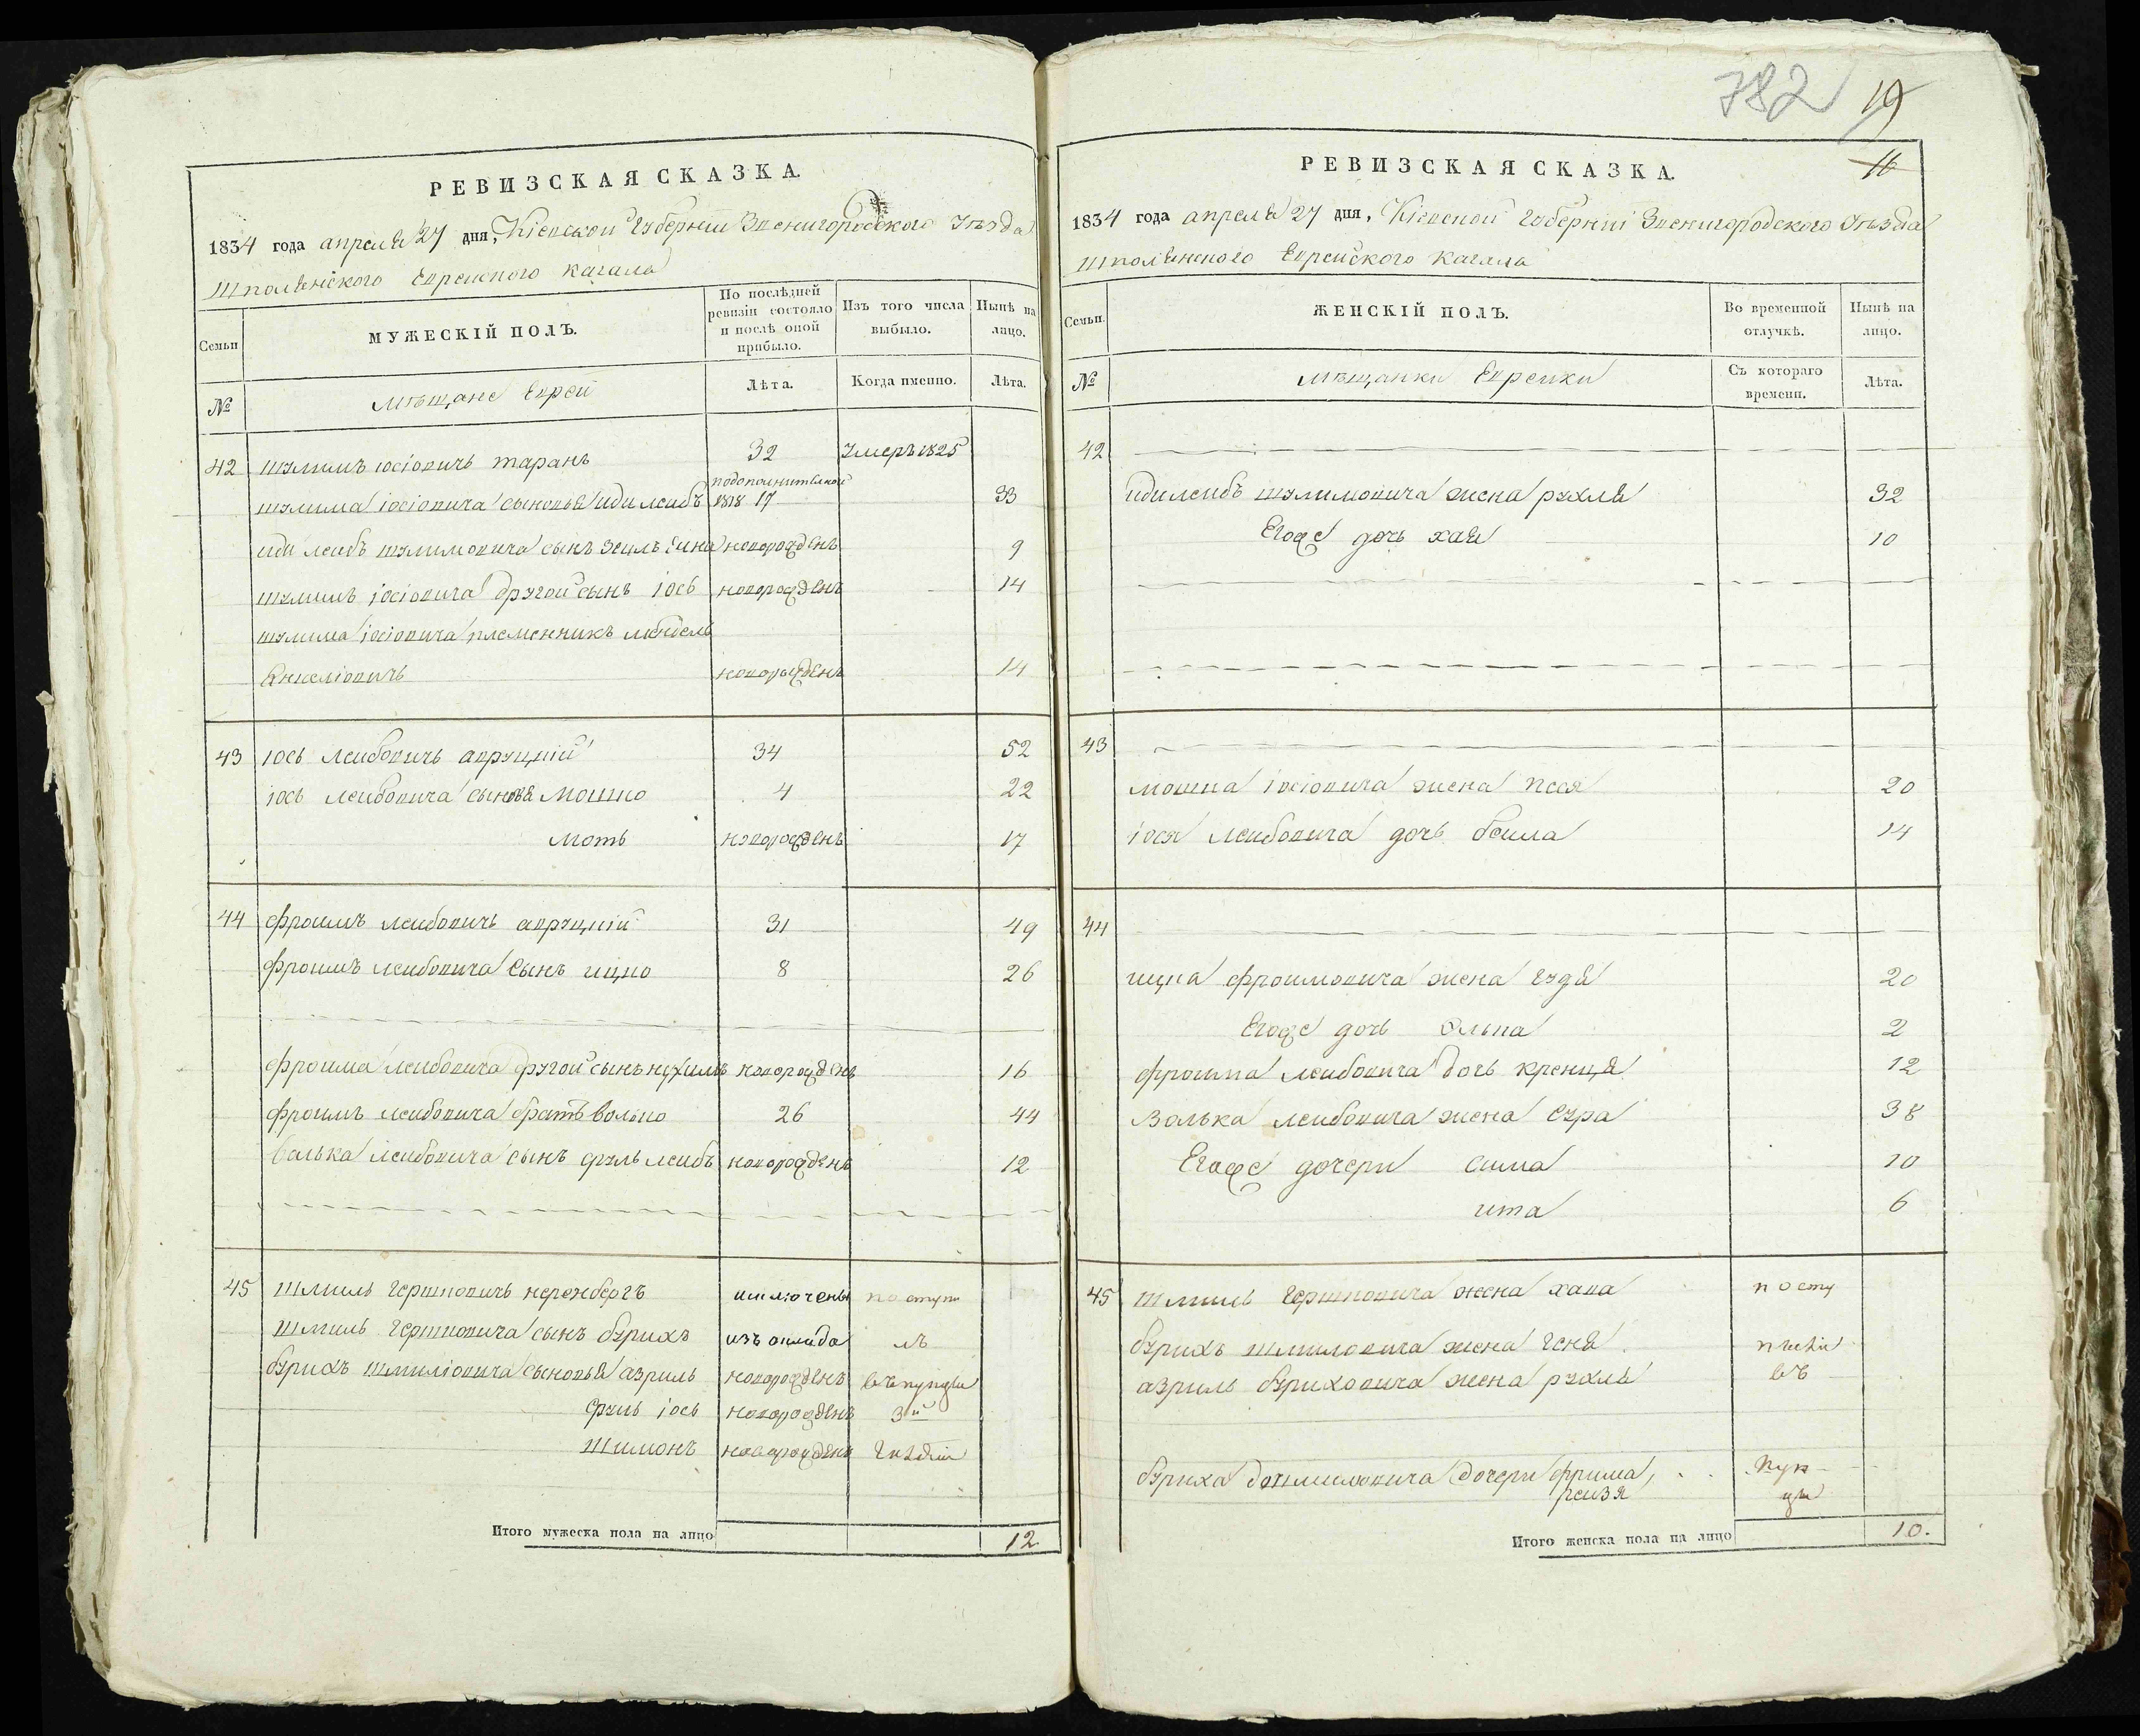 782 19
16
РЕВИЗСКАЯ СКАЗКА.
1834 года апреля 27 дня, Кіевской Губерніи Звенигородского Уѣзда
Шполянского Еврейского Кагала
Семьи
МУЖЕСКІЙ ПОЛЪ.
По послѣдней
ревизіи состояло
и послѣ оной
прибыло.
Изъ того числа
выбыло.
Нынѣ на
лицо.
№
Мѣщане Евреи
Лѣта.
Когда именно.
Лѣта.
42 шулимъ іосіовичъ таранъ 32 Умеръ 1825
шулима іосіовича сыновья иди леибъ 1818 17 33
иди леибъ шулимовича сынъ новорожденъ 9
шулимъ іосіовича другой сынъ іось новорожденъ 14
шулима іосіовича племенникъ мендель
Янкеліовичъ новорожденъ 14
43 іось леибовичъ авруцкій 34 52
іось леибовича сыновя мошко 4 22
моть новорожденъ 17
44 фроимъ леибовичъ авруцкій 31 49
фроимъ леибовича сынъ ицко 8 26
фроима леибовича другой сынъ нухимъ новорожденъ 16
фроимъ леибовича братъ волько 26 44
волька леибовича сынъ сруль леибъ новорожденъ 12
45 шмиль гершковичъ неренбергъ исключены поступи
шмиль гершковича сынъ бурихъ изъ оклада лъ
бурихъ шмиліовича сыновья азриль новорожденъ въ купцы
сруль іось новорожденъ 3й
шимонъ новорожденъ гилдіи
Итого мужеска пола на лицо 12
РЕВИЗСКАЯ СКАЗКА.
1834 года апреля 27 дня, Кіевской Губерніи Звенигородского Уѣзда
шполянского Еврейского Кагала
Семьи.
ЖЕНСКІЙ ПОЛЪ.
Во временной
отлучкѣ.
Нынѣ на
лицо.
№
Мѣщанки Еврейки
Съ котораго
времени.
Лѣта.
42
иди леибъ шулимовича жена рухля 32
Егоже дочь хая 10
43
мошка іосіовича жена песя 20
іося леибовича дочь беила 14
44
ицка фроимовича жена гудя 20
Егоже дочь элька 2
фроима леибовича дочь креиця 12
Волька леибовича жена сура 38
Егоже дочери сима 10
ита 6
45 шмиль гершковича жена хава посту
бурихъ шмиловича жена геня
азриль буриховича жена рухля въ
буриха шмиловича дочери фрима, куп
реизя цы
Итого женска пола на лицо 10.